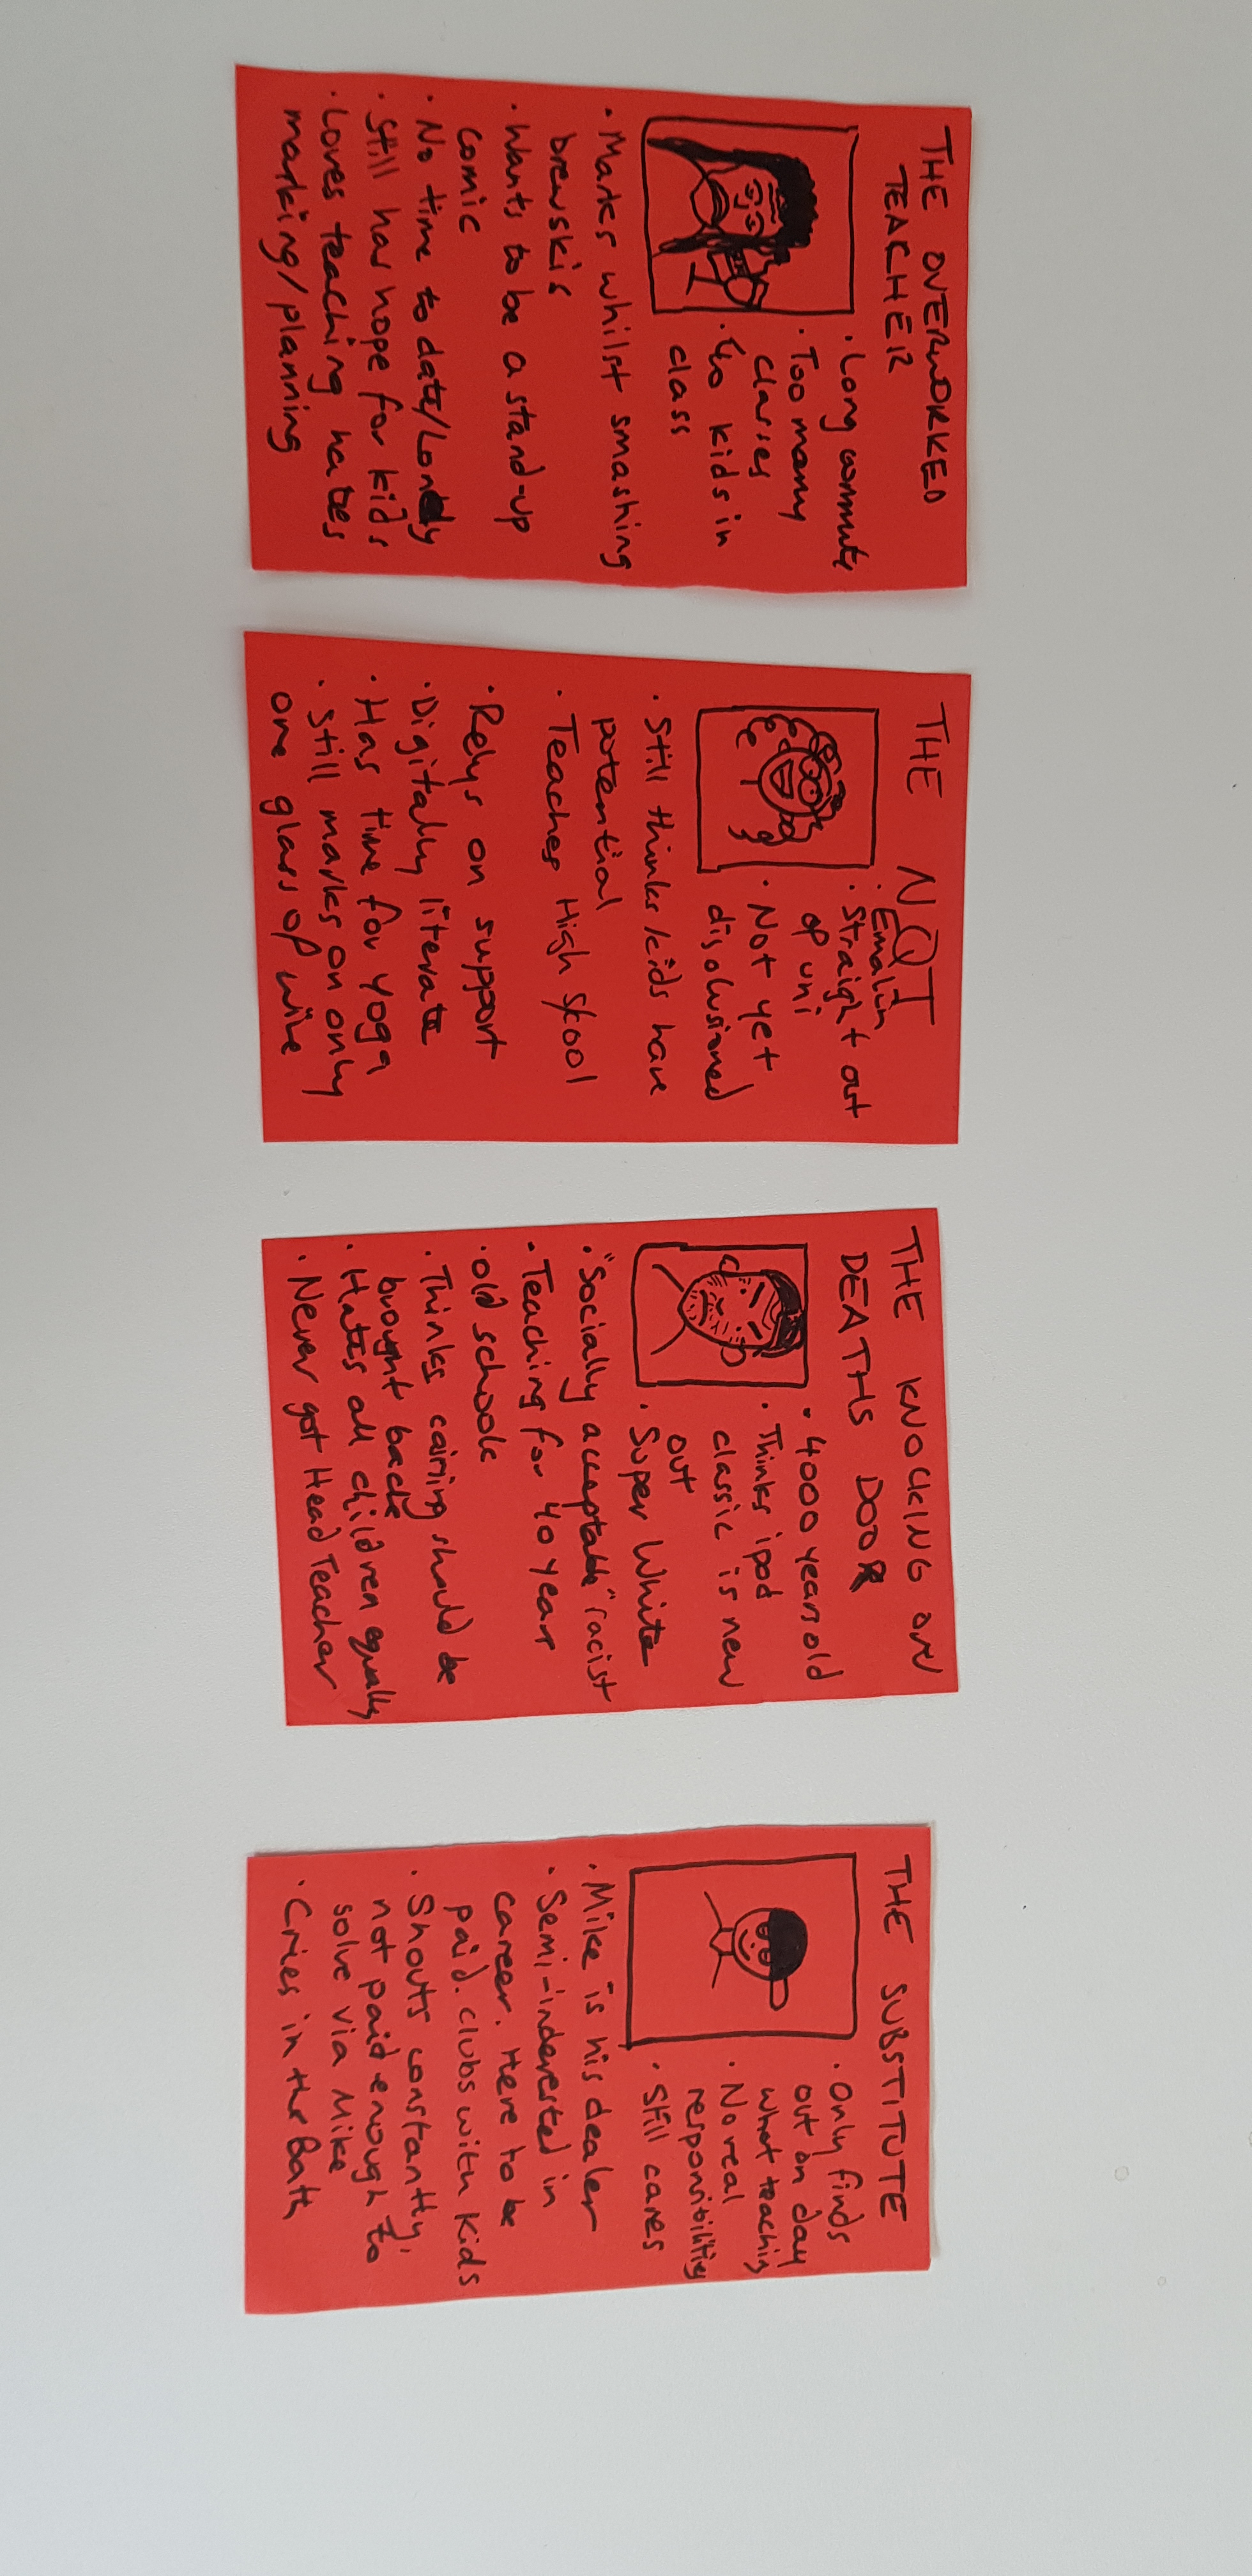 THE OVERWORKED
TEACHER
· Long commute
· Too many
classes
· 40 kids in
class
· Marks whilst smashing
brewskis
· Wants to be a stand-up
comic
· No time to date/Lonely
· Still has hope for kids
· Loves teaching hates
marking/planning
THE NQT
· Emalin
· Straight out
of uni
· Not yet
disolusioned
· Still thinks kids have
potential
· Teaches High Skool
· Relys on support
· Digitally literate
· Has time for yoga
· Still marks on only
one glass of wine
THE KNOCKING ON
DEATHS DOOR
· 4000 years old
· Thinks ipod
classic is new
out
· Super White
· "Socially acceptable" racist
· Teaching for 40 year
· old schoole
· Thinks caining should be
brought back
· Hates all children equally
· Never got Head Teacher
THE SUBSTITUTE
· Only finds
out on day
what teaching
· No real
responsibilities
· Still cares
· Mike is his dealer
· Semi-inderested in
career. Here to be
paid. clubs with kids
· Shouts constantly,
not paid enough to
solve via Mike
· Cries in the Bath